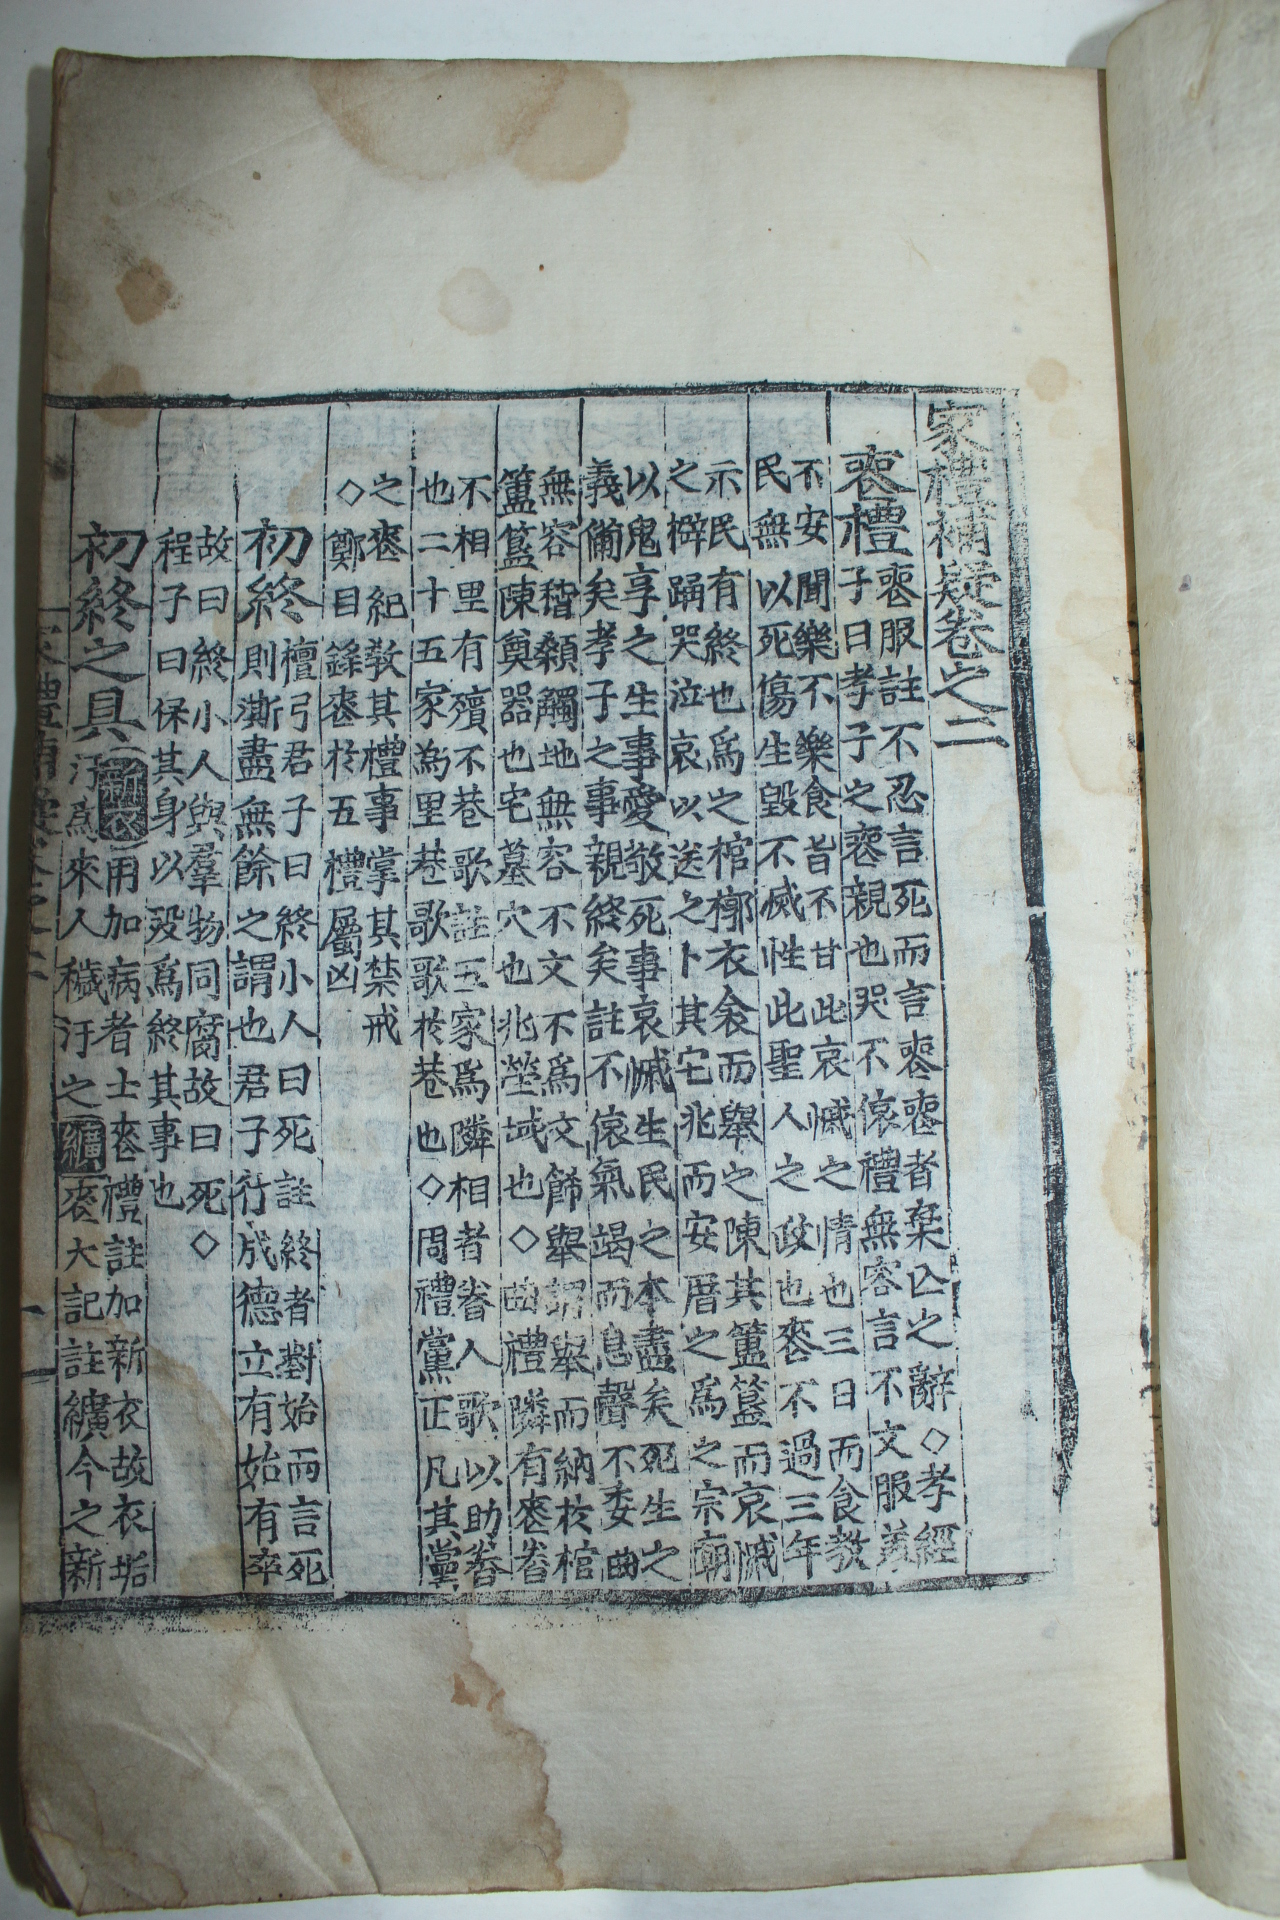 家禮補疑卷之二
喪禮
喪服註不忍言死而言喪喪者棄亾之辭◇孝經
子曰孝子之喪親也哭不偯禮無容言不文服美
不安聞樂不樂食旨不甘此哀慼之情也三日而食教
民無以死傷生毀不滅性此聖人之政也喪不過三年
示民有終也爲之棺槨衣衾而舉之陳其簠簋而哀慼
之擗踊哭泣哀以送之卜其宅兆而安厝之爲之宗廟
以鬼享之生事愛敬死事哀慼生民之本盡矣死生之
義備矣孝子之事親終矣註不偯氣竭而息聲不委曲
無容稽顙觸地無容不文不爲文飾舉謂舉而納於棺
簠簋陳奠器也宅墓穴也兆塋域也◇曲禮隣有喪舂
不相里有殯不巷歌註五家爲隣相者舂人歌以助舂
也二十五家爲里巷歌歌於巷也◇周禮黨正凡其黨
之喪紀敎其禮事掌其禁戒
◇鄭目錄喪於五禮屬凶
初終
檀弓君子曰終小人曰死註終者對始而言死
則澌盡無餘之謂也君子行成德立有始有卒
故曰終小人與羣物同腐故曰死◇
程子曰保其身以歿爲終其事也
初終之具
新衣用加病者士喪禮註加新衣故衣垢
汙爲來人穢汙之纊喪大記註纊今之新
家禮補疑卷之二
一